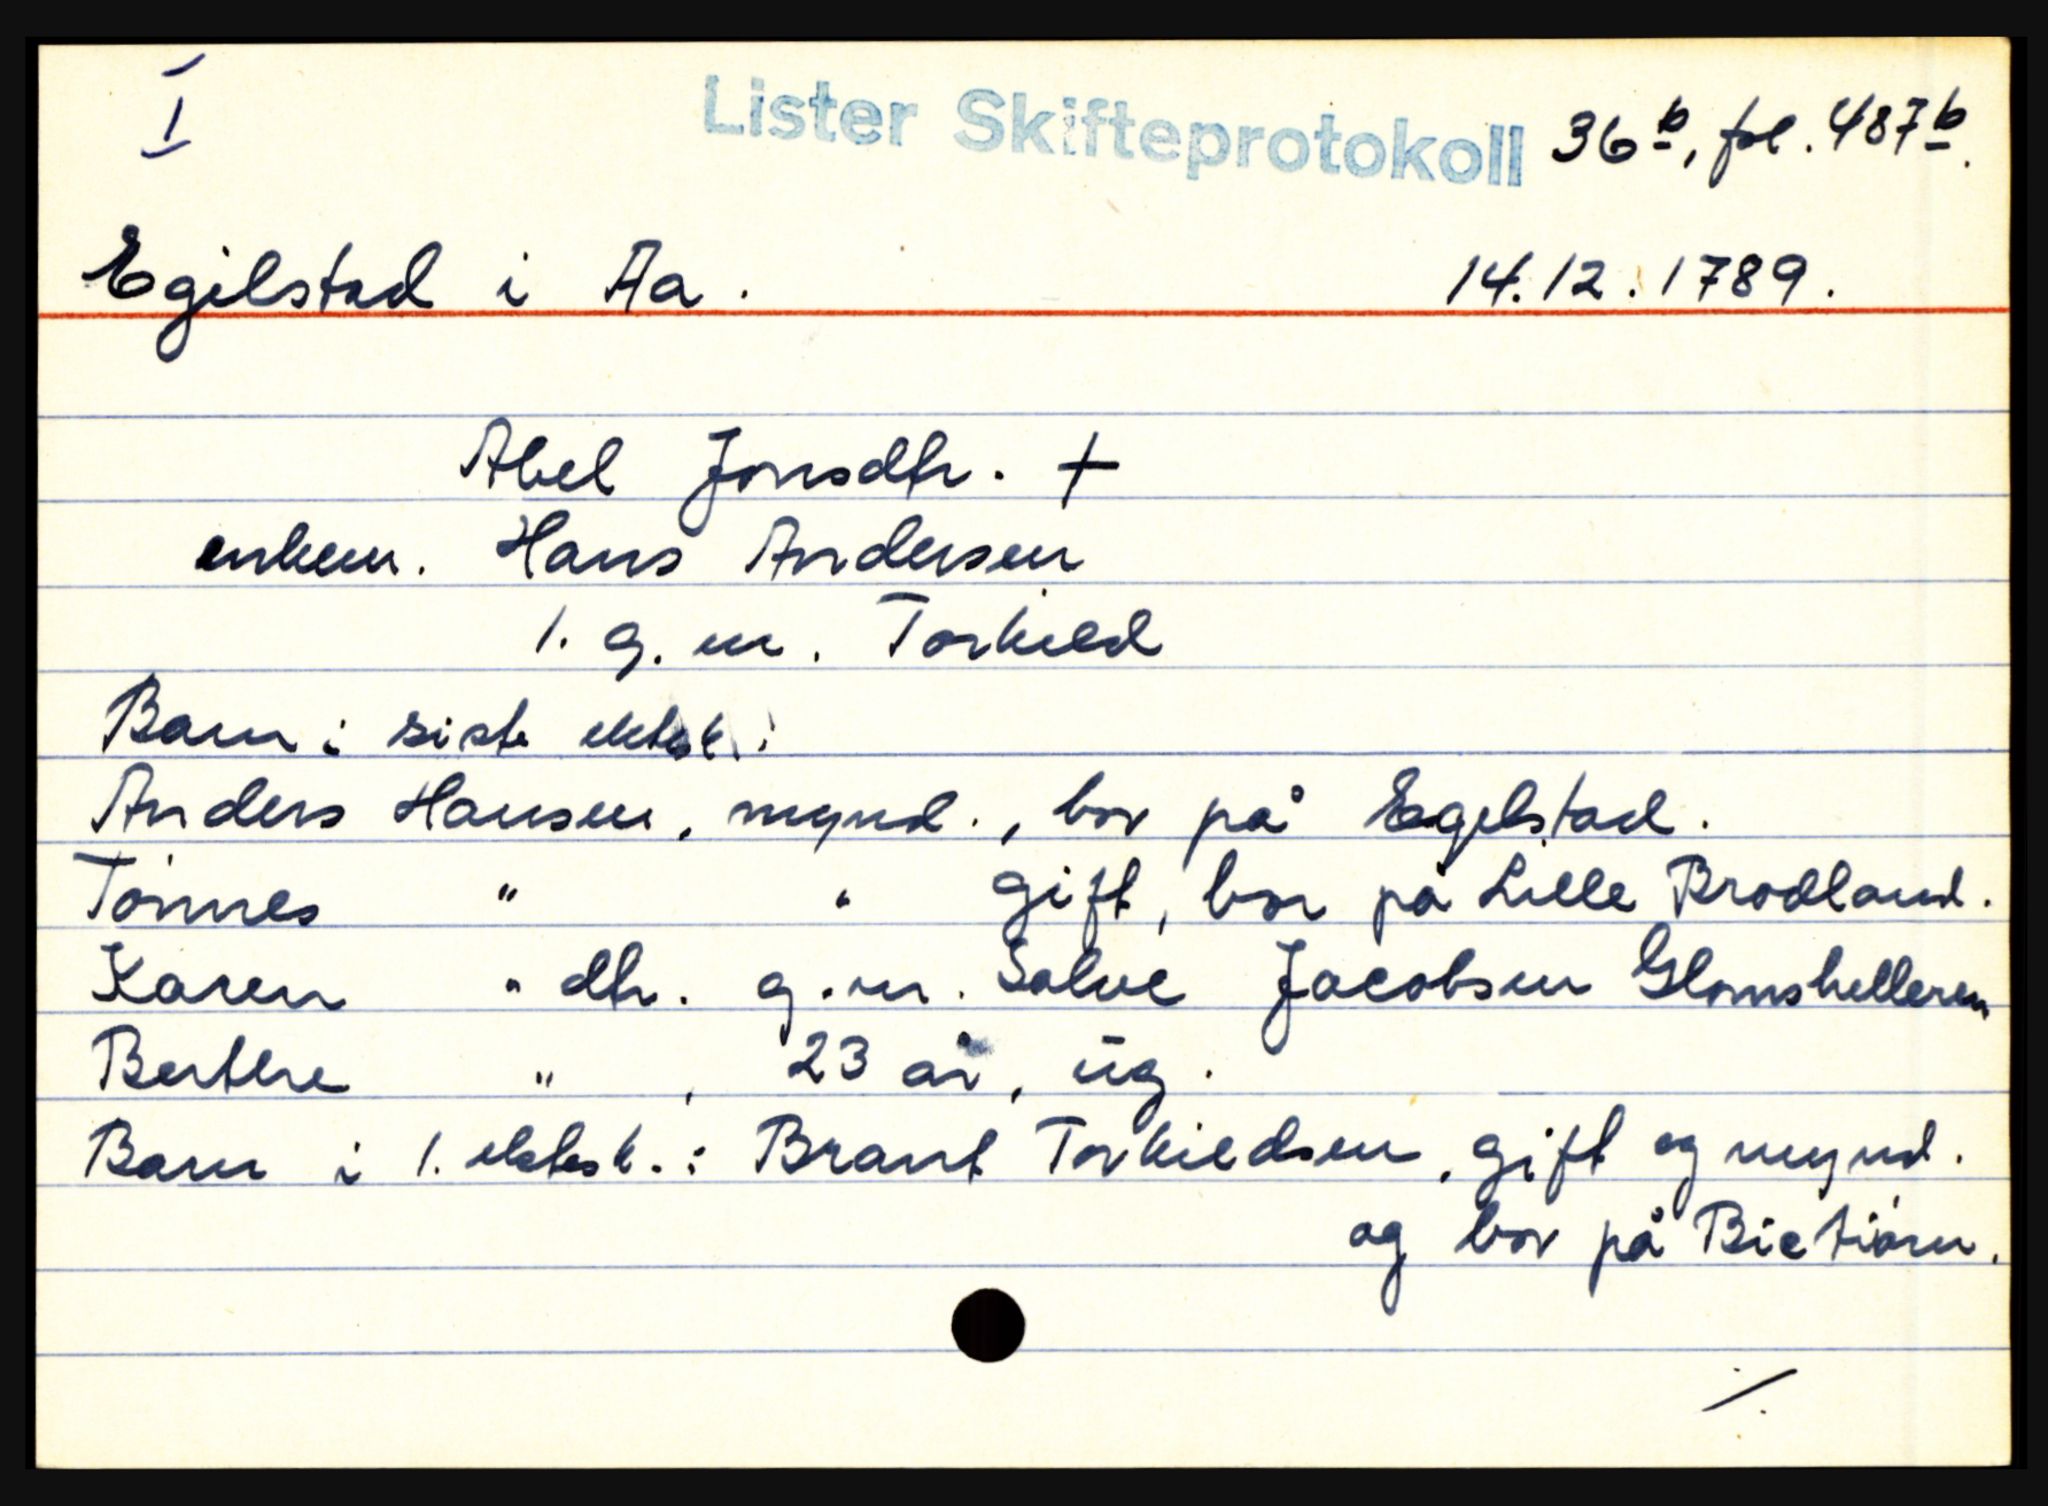 I
Lister Skifteprotokoll 36b, fol. 487b.
Egilstad i Aa. 14.12.1789.
Abel Jonsdtr. +
enkem. Hans Andersen
1. g. m. Torkild
Barn i siste ektesk.:
Anders Hansen, mynd., bor på Egelstad.
Tønnes " " gift, bor på Lille Brodland.
Karen " dtr. g.m. Salve Jacobsen Glomshelleren
Berthe " , 23 år, ug.
Barn i 1. ektesk.: Brant Torkildsen, gift og mynd.
og bor på
./.